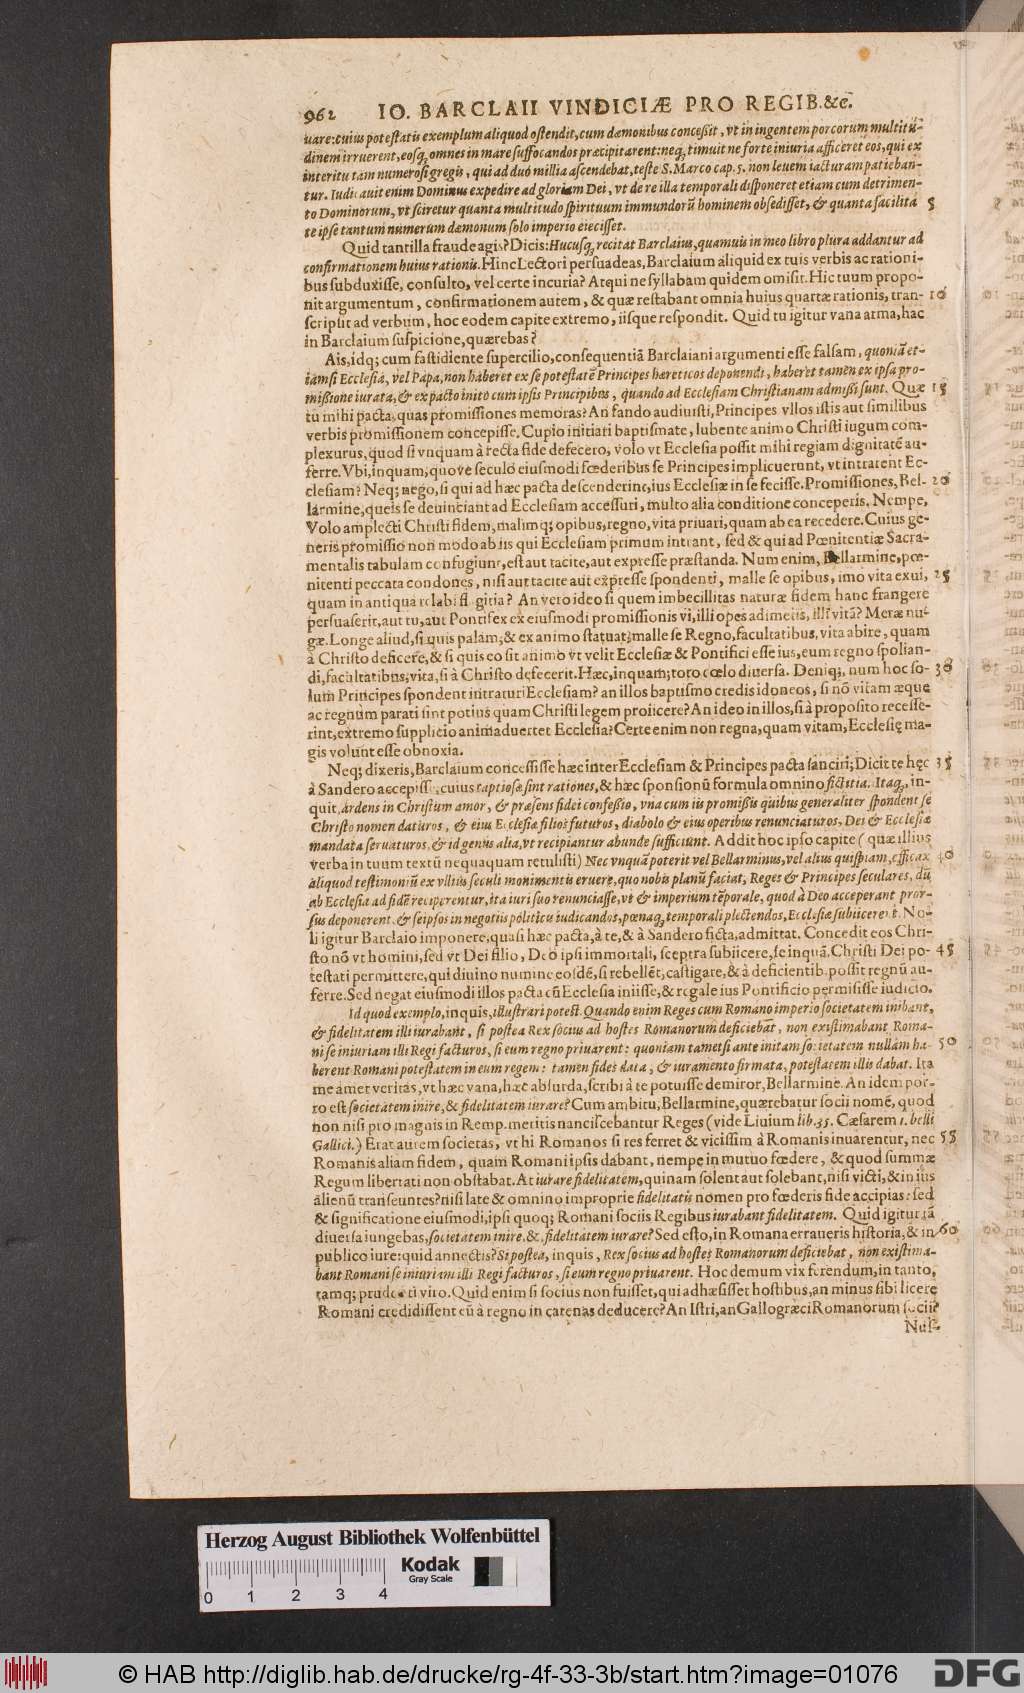 962 IO. BARCLAII VINDICIÆ PRO REGIB. &c.
uare: cuius potestatis exemplum aliquod ostendit, cum dæmonibus concessit, vt in ingentem porcorum multitu-
dinem irruerent, eosq; omnes in mare suffocandos præcipitarent: neq; timuit ne forte iniuria afficeret eos, qui ex
interitu tam numerosi gregis, qui ad duo millia ascendebat, teste S. Marco cap. 5. non leuem iacturam patieban-
tur. Iudicauit enim Dominus expedire ad gloriam Dei, vt de re illa temporali disponeret etiam cum detrimen-
to Dominorum, vt sciretur quanta multitudo spirituum immundorū hominem obsedisset, & quanta facilita 5
te ipse tantum numerum dæmonum solo imperio eiecisset.
Quid tantilla fraude agis? Dicis: Hucusq; recitat Barclaius, quamuis in meo libro plura addantur ad
confirmationem huius rationis. Hinc Lectori persuadeas, Barclaium aliquid ex tuis verbis ac rationi-
bus subduxisse, consulto, vel certe incuria? Atqui ne syllabam quidem omisit. Hic tuum propo-
nit argumentum, confirmationem autem, & quæ restabant omnia huius quartæ rationis, tran- 10
scripsit ad verbum, hoc eodem capite extremo, iisque respondit. Quid tu igitur vana arma, hac
in Barclaium suspicione, quærebas?
Ais, idq; cum fastidiente supercilio, consequentiā Barclaiani argumenti esse falsam, quoniā et-
iamsi Ecclesia, vel Papa, non haberet ex se potestatē Principes hæreticos deponendi, haberet tamen ex ipsa pro-
missione iurata, & ex pacto inito cum ipsis Principibus, quando ad Ecclesiam Christianam admissi sunt. Quæ 15
tu mihi pacta, quas promissiones memoras? An fando audiuisti, Principes vllos istis aut similibus
verbis promissionem concepisse. Cupio initiari baptismate, lubente animo Christi iugum com-
plexurus, quod si vnquam à recta fide defecero, volo vt Ecclesia possit mihi regiam dignitatē au-
ferre. Vbi, inquam, quove seculo eiusmodi fœderibus se Principes implicuerunt, vt intrarent Ec-
clesiam? Neq; nego, si qui ad hæc pacta descenderint, ius Ecclesiæ in se fecisse. Promissiones, Bel- 20
larmine, queis se deuinciant ad Ecclesiam accessuri, multo alia conditione conceperis. Nempe,
Volo amplecti Christi fidem, malimq; opibus, regno, vita priuari, quam ab ea recedere. Cuius ge-
neris promissio non modo ab iis qui Ecclesiam primum intrant, sed & qui ad Pœnitentiæ Sacra-
mentalis tabulam confugiunt, est aut tacite, aut expresse præstanda. Num enim, Bellarmine, pœ-
nitenti peccata condones, nisi aut tacite aut expresse spondenti, malle se opibus, imo vita exui, 25
quam in antiqua relabi flagitia? An vero ideo si quem imbecillitas naturæ fidem hanc frangere
persuaserit, aut tu, aut Pontifex ex eiusmodi promissionis vi, illi opes adimetis, illi vitā? Meræ nu-
gæ. Longe aliud, si quis palam, & ex animo statuat, malle se Regno, facultatibus, vita abire, quam
à Christo deficere, & si quis eo sit animo vt velit Ecclesiæ & Pontifici esse ius, eum regno spolian-
di, facultatibus, vita, si à Christo defecerit. Hæc, inquam, toto cœlo diuersa. Deniq;, num hoc so- 30
lum Principes spondent intraturi Ecclesiam? an illos baptismo credis idoneos, si nō vitam æque
ac regnum parati sint potius quam Christi legem proiicere? An ideo in illos, si à proposito recesse-
rint, extremo supplicio animaduertet Ecclesia? Certe enim non regna, quam vitam, Ecclesię ma-
gis volunt esse obnoxia.
Neq; dixeris, Barclaium concessisse hæc inter Ecclesiam & Principes pacta sanciri; Dicit te hęc 35
à Sandero accepisse, cuius captiosæ sint rationes, & hæc sponsionū formula omnino fictitia. Itaq;, in-
quit, Ardens in Christum amor, & præsens fidei confessio, vna cum iis promissis quibus generaliter spondent se
Christo nomen daturos, & eius Ecclesiæ filios futuros, diabolo & eius operibus renunciaturos, Dei & Ecclesiæ
mandata seruaturos, & id genus alia, vt recipiantur abunde sufficiunt. Addit hoc ipso capite (quæ illius
verba in tuum textū nequaquam retulisti) Nec vnquā poterit vel Bellarminus, vel alius quispiam, efficax 40
aliquod testimoniū ex vllius seculi monimentis eruere, quo nobis planū faciat, Reges & Principes seculares, dū
ab Ecclesia ad fidē reciperentur, ita iuri suo renunciasse, vt & imperium tēporale, quod à Deo acceperant pror-
sus deponerent, & seipsos in negotiis politicis iudicandos, pœnaq; temporali plectendos, Ecclesiæ subiicerent. No-
li igitur Barclaio imponere, quasi hæc pacta, à te, & à Sandero ficta, admittat. Concedit eos Chri-
sto nō vt homini, sed vt Dei filio, Deo ipsi immortali, sceptra subiicere, se inquā. Christi Dei po- 45
testati permittere, qui diuino numine eosdē, si rebellēt, castigare, & à deficientib. possit regnū au-
ferre. Sed negat eiusmodi illos pacta cū Ecclesia iniisse, & regale ius Pontificio permisisse iudicio.
Id quod exemplo, inquis, illustrari potest. Quando enim Reges cum Romano imperio societatem inibant,
& fidelitatem illi iurabant, si postea Rex socius ad hostes Romanorum deficiebat, non existimabant Roma-
ni se iniuriam illi Regi facturos, si eum regno priuarent: quoniam tametsi ante initam societatem nullam ha- 50
berent Romani potestatem in eum regem: tamen fides data, & iuramento firmata, potestatem illis dabat. Ita
me amet veritas, vt hæc vana, hæc absurda, scribi à te potuisse demiror, Bellarmine. An idem por-
ro est societatem inire, & fidelitatem iurare? Cum ambitu, Bellarmine, quærebatur socii nomē, quod
non nisi pro magnis in Remp. meritis nanciscebantur Reges (vide Liuium lib. 35. Cæsarem 1. belli
Gallici.) Erat autem societas, vt hi Romanos si res ferret & vicissim à Romanis iuuarentur, nec 55
Romanis aliam fidem, quam Romani ipsis dabant, nempe in mutuo fœdere, & quod summæ
Regum libertati non obstabat. At iurare fidelitatem, quinam solent aut solebant, nisi victi, & in ius
alienū transeuntes? nisi late & omnino improprie fidelitatis nomen pro fœderis fide accipias: sed
& significatione eiusmodi, ipsi quoq; Romani sociis Regibus iurabant fidelitatem. Quid igitur tā
diuersa iungebas, societatem inire, & fidelitatem iurare? Sed esto, in Romana erraueris historia, & in 60
publico iure: quid annectis? Si postea, inquis, Rex socius ad hostes Romanorum deficiebat, non existima-
bant Romani se iniuriam illi Regi facturos, si eum regno priuarent. Hoc demum vix ferendum, in tanto,
tamq; prudenti viro. Quid enim si socius non fuisset, qui adhæsisset hostibus, an minus sibi licere
Romani credidissent eū à regno in catenas deducere? An Istri, an Gallogræci Romanorum socii?
Nus-
Herzog August Bibliothek Wolfenbüttel
Kodak
Gray Scale
0 1 2 3 4
© HAB http://diglib.hab.de/drucke/rg-4f-33-3b/start.htm?image=01076
DFG